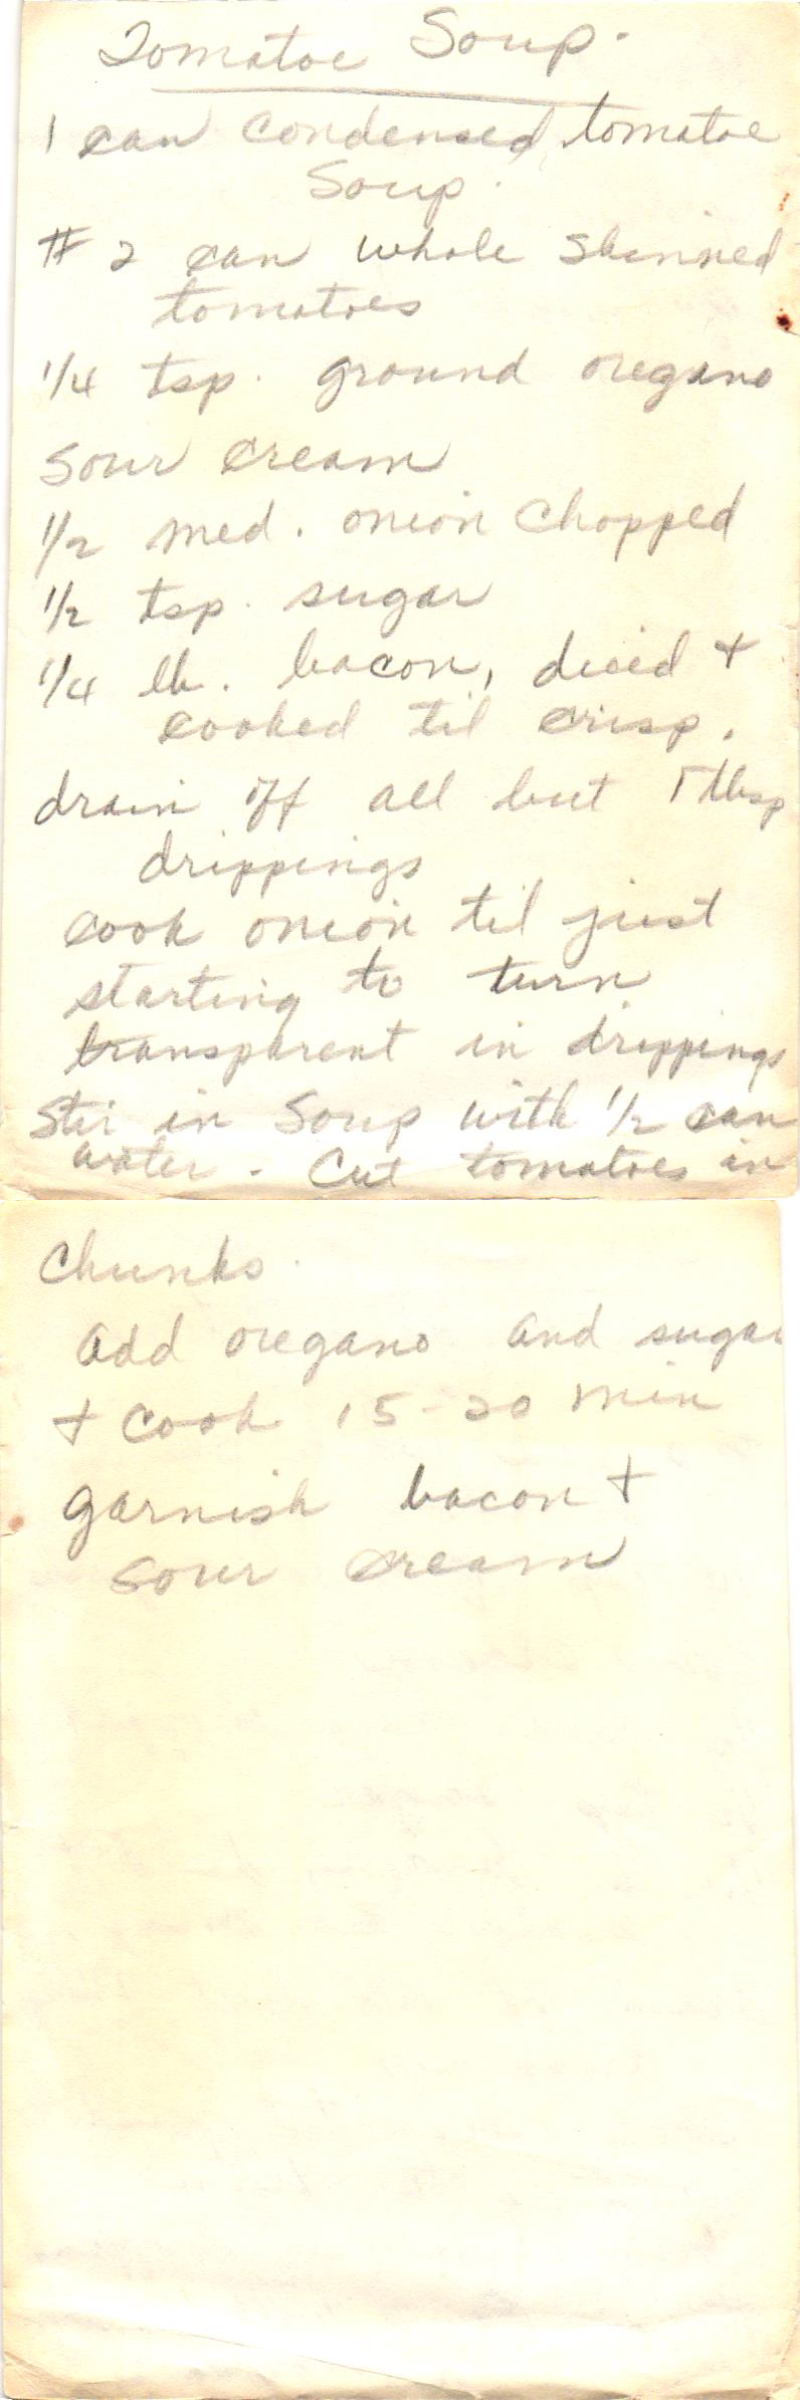 Tomatoe Soup.
1 can Condensed tomatoe
Soup.
# 2 can whole skinned
tomatoes
1/4 tsp. ground oregano
Sour Cream
1/2 med. onion Chopped
1/2 tsp. sugar
1/4 lb. bacon, diced +
cooked til crisp.
drain off all but 1 tbsp
drippings
cook onion til just
starting to turn
transparent in drippings
Stir in Soup with 1/2 can
water. Cut tomatoes in
Chunks.
add oregano and sugar
+ Cook 15-20 min
garnish bacon +
sour cream